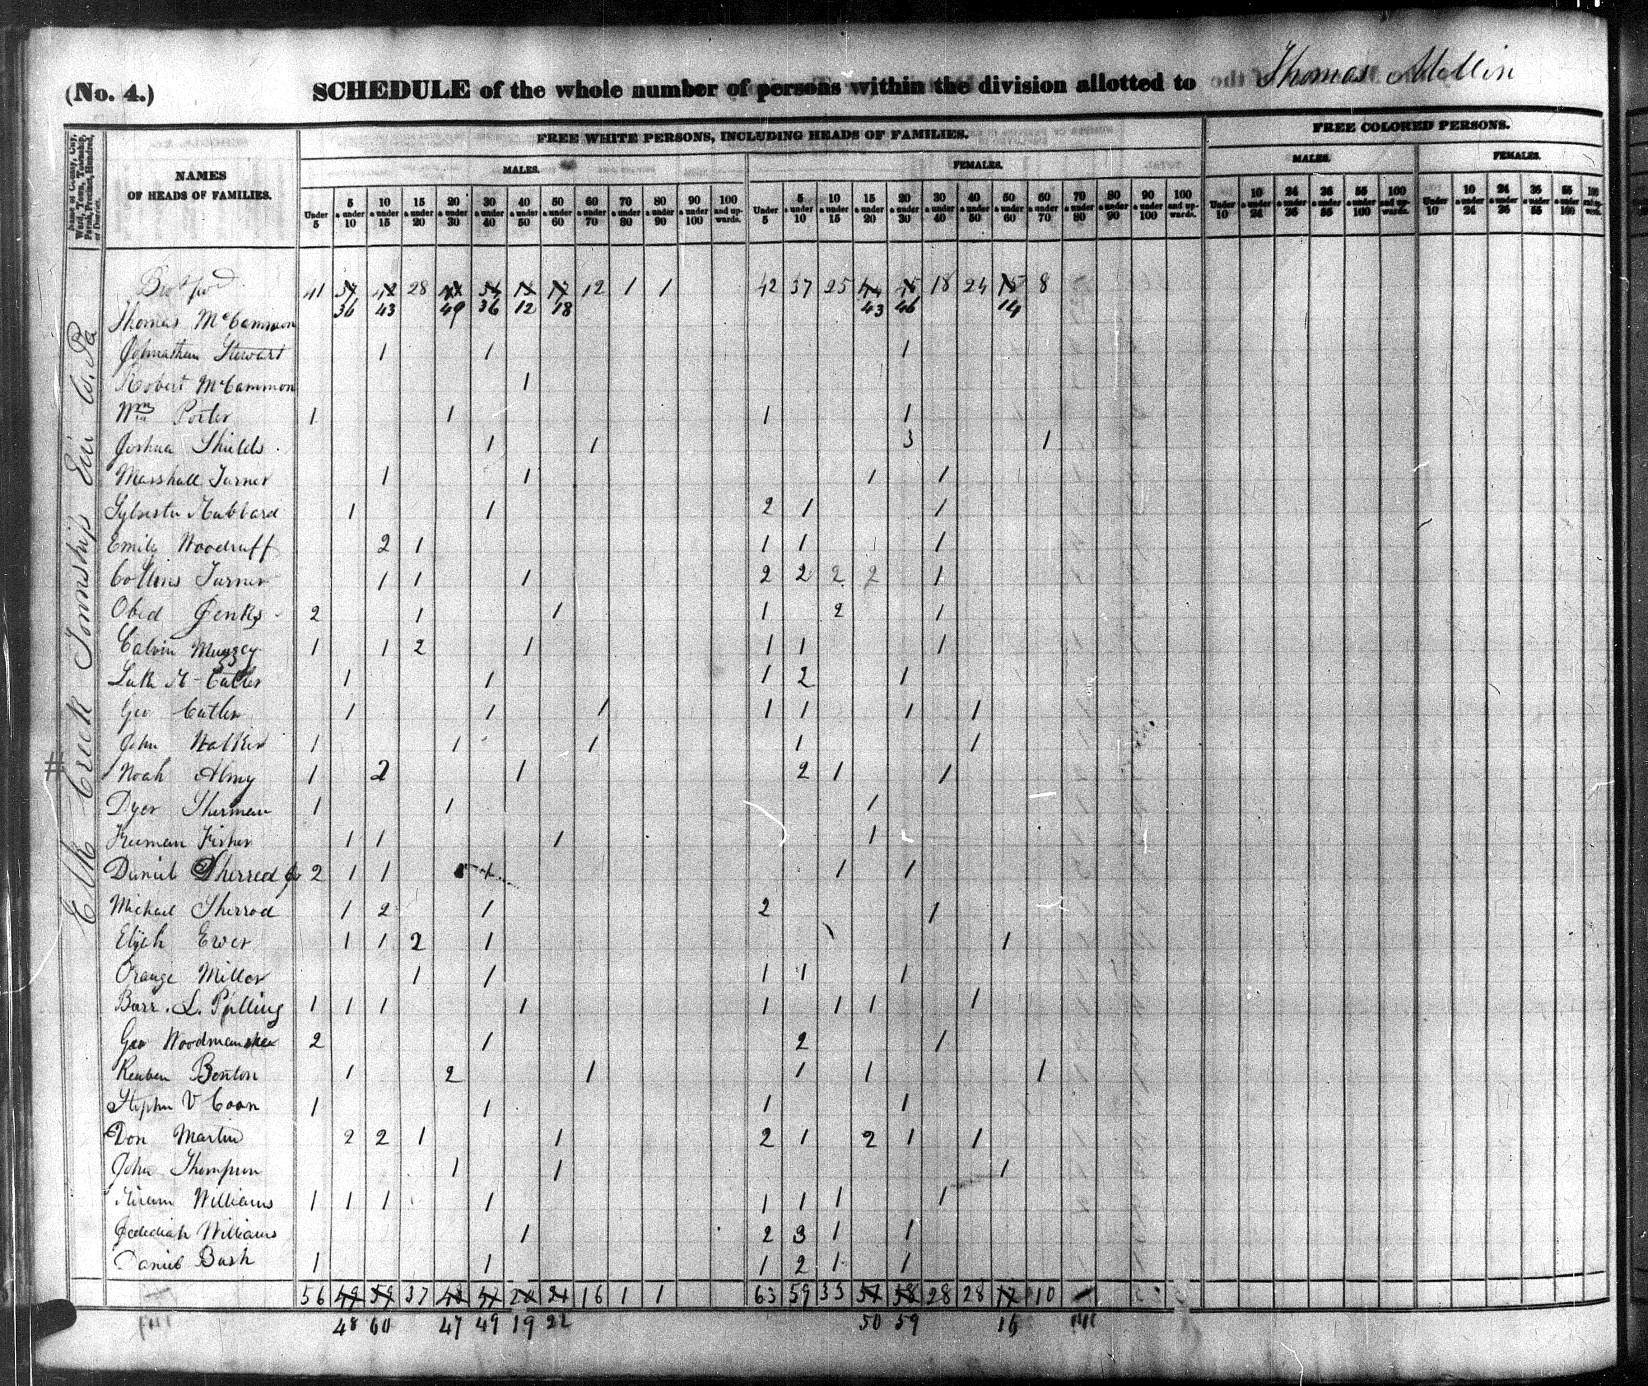 (No. 4.) SCHEDULE of the whole number of persons within the division allotted to Thomas
FREE WHITE PERSONS, INCLUDING HEADS OF FAMILIES. FREE COLORED PERSONS.
MALES. FEMALES. MALES. FEMALES.
NAMES
OF HEADS OF FAMILIES.
Under 5 | 5 & under 10 | 10 & under 15 | 15 & under 20 | 20 & under 30 | 30 & under 40 | 40 & under 50 | 50 & under 60 | 60 & under 70 | 70 & under 80 | 80 & under 90 | 90 & under 100 | 100 and upwards. | Under 5 | 5 & under 10 | 10 & under 15 | 15 & under 20 | 20 & under 30 | 30 & under 40 | 40 & under 50 | 50 & under 60 | 60 & under 70 | 70 & under 80 | 80 & under 90 | 90 & under 100 | 100 and upwards. | Under 10 | 10 & under 24 | 24 & under 36 | 36 & under 55 | 55 & under 100 | 100 and upwards. | Under 10 | 10 & under 24 | 24 & under 36 | 36 & under 55 | 55 & under 100 | 100 and upwards.
Elk Creek Township Erie Co. Pa
41 28 12 1 1 42 37 25 18 24 8
36 43 49 36 12 18 43 46 14
Thomas McCammon
Johnathan Stewart 1 1 1
Robert McCammon 1
Wm Porter 1 1 1 1
Joshua Shields 1 1 3 1
Marshall Turner 1 1 1 1
Sylvester Hubbard 1 1 2 1 1
Emily Woodruff 2 1 1 1 1
Collins Turner 1 1 1 2 2 2 2 1
Obed Jenks 2 1 1 1 2 1
Calvin Muzzey 1 1 2 1 1 1 1
1 1 1 2 1
Geo Cutler 1 1 1 1 1 1 1
John Walker 1 1 1 1 1
# Noah Almy 1 2 1 2 1 1
Dyer Sherman 1 1 1
Freeman Fisher 1 1 1 1
Daniel Sherred Jr 2 1 1 1 1 1
Michael Sherrod 1 2 1 2 1
Elijah Ewer 1 1 2 1 1
Orange Miller 1 1 1 1 1
L. 1 1 1 1 1 1 1 1
Geo Woodmanshee 2 1 2 1
Reuben Benton 1 2 1 1 1 1
Stephen V Coon 1 1 1 1
Don Martin 2 2 1 1 2 1 2 1 1
John Thompson 1 1 1
Hiram Williams 1 1 1 1 1 1 1 1
Jedediah Williams 1 2 3 1 1
Daniel Bush 1 1 1 2 1 1
56 49 59 37 16 1 1 63 59 33 58 28 28 17 10
48 60 47 49 19 22 50 59 16